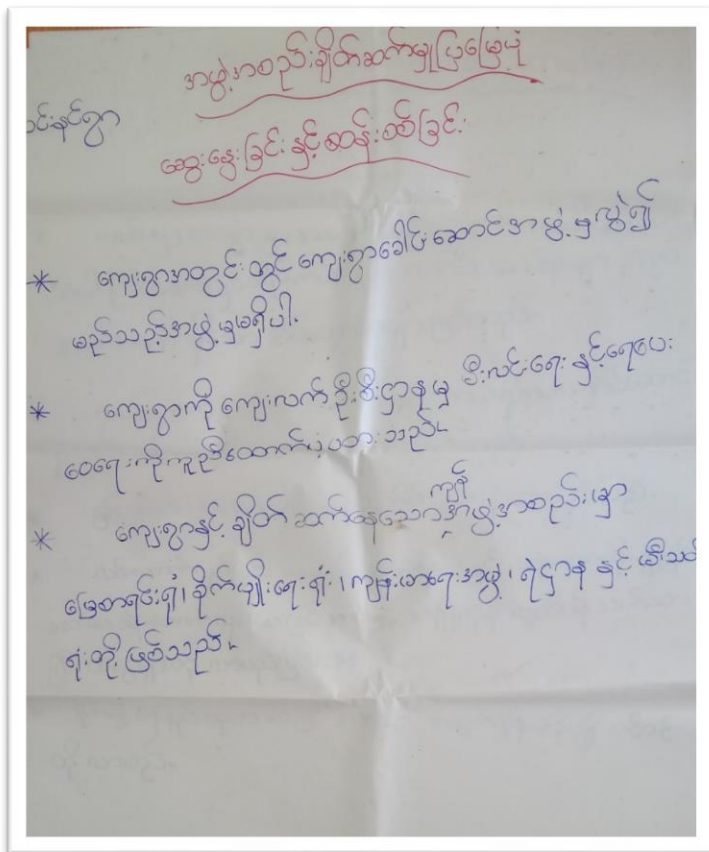 အဖွဲ့အစည်းချိတ်ဆက်မှုပြမြေပုံ
ဆွေးနွေးခြင်းနှင့်ဆန်းစစ်ခြင်း
* ကျေးရွာအတွင်းတွင် ကျေးရွာခေါင်းဆောင်အဖွဲ့မှလွဲ၍
မည်သည့်အဖွဲ့မှမရှိပါ။
* ကျေးရွာကို ကျေးလက်ဦးစီးဌာနမှ မီးလင်းရေး နှင့်ရေပေး
ဝေရေးကိုကူညီထောက်ပံ့ပထား သည်။
* ကျေးရွာနှင့် ချိတ်ဆက်နေသော ကျန် အဖွဲ့အစည်းမှာ
မြေစာရင်းရုံး၊ စိုက်ပျိုးရေးရုံး၊ ကျန်းမာရေးအဖွဲ့၊ ရဲဌာန နှင့် မီးသတ်
ရုံးတို့ဖြစ်သည်။